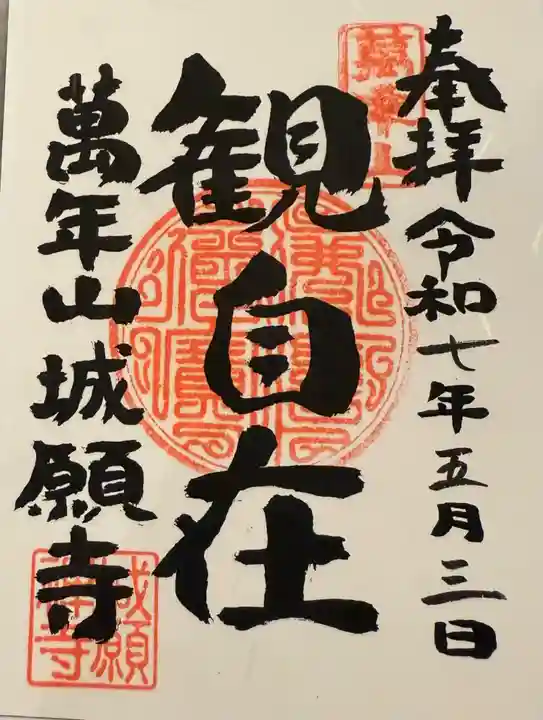 奉拝 令和七年五月三日
観自在
萬年山 城願寺
城願
禅寺